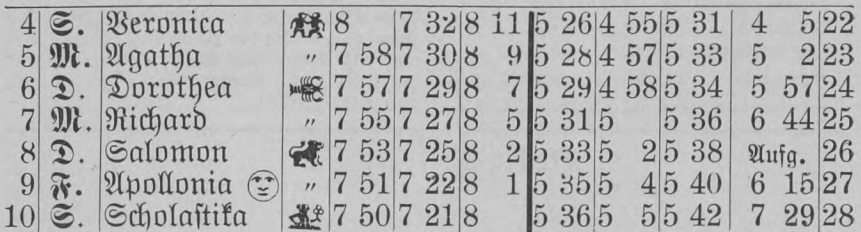 4 S. Veronica 8 7 32 8 11 5 26 4 55 5 31 4 5 22
5 M. Agatha " 7 58 7 30 8 9 5 28 4 57 5 33 5 2 23
6 D. Dorothea 7 57 7 29 8 7 5 29 4 58 5 34 5 57 24
7 M. Richard " 7 55 7 27 8 5 5 31 5 5 36 6 44 25
8 D. Salomon 7 53 7 25 8 2 5 33 5 2 5 38 Aufg. 26
9 F. Apollonia " 7 51 7 22 8 1 5 35 5 4 5 40 6 15 27
10 S. Scholaſtika 7 50 7 21 8 5 36 5 5 5 42 7 29 28